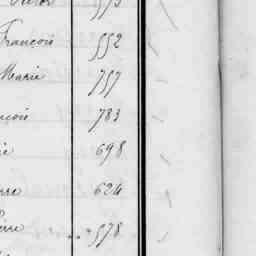 François 552
Marie 757
nçois 783
ie 698
rre 624
ierre 578